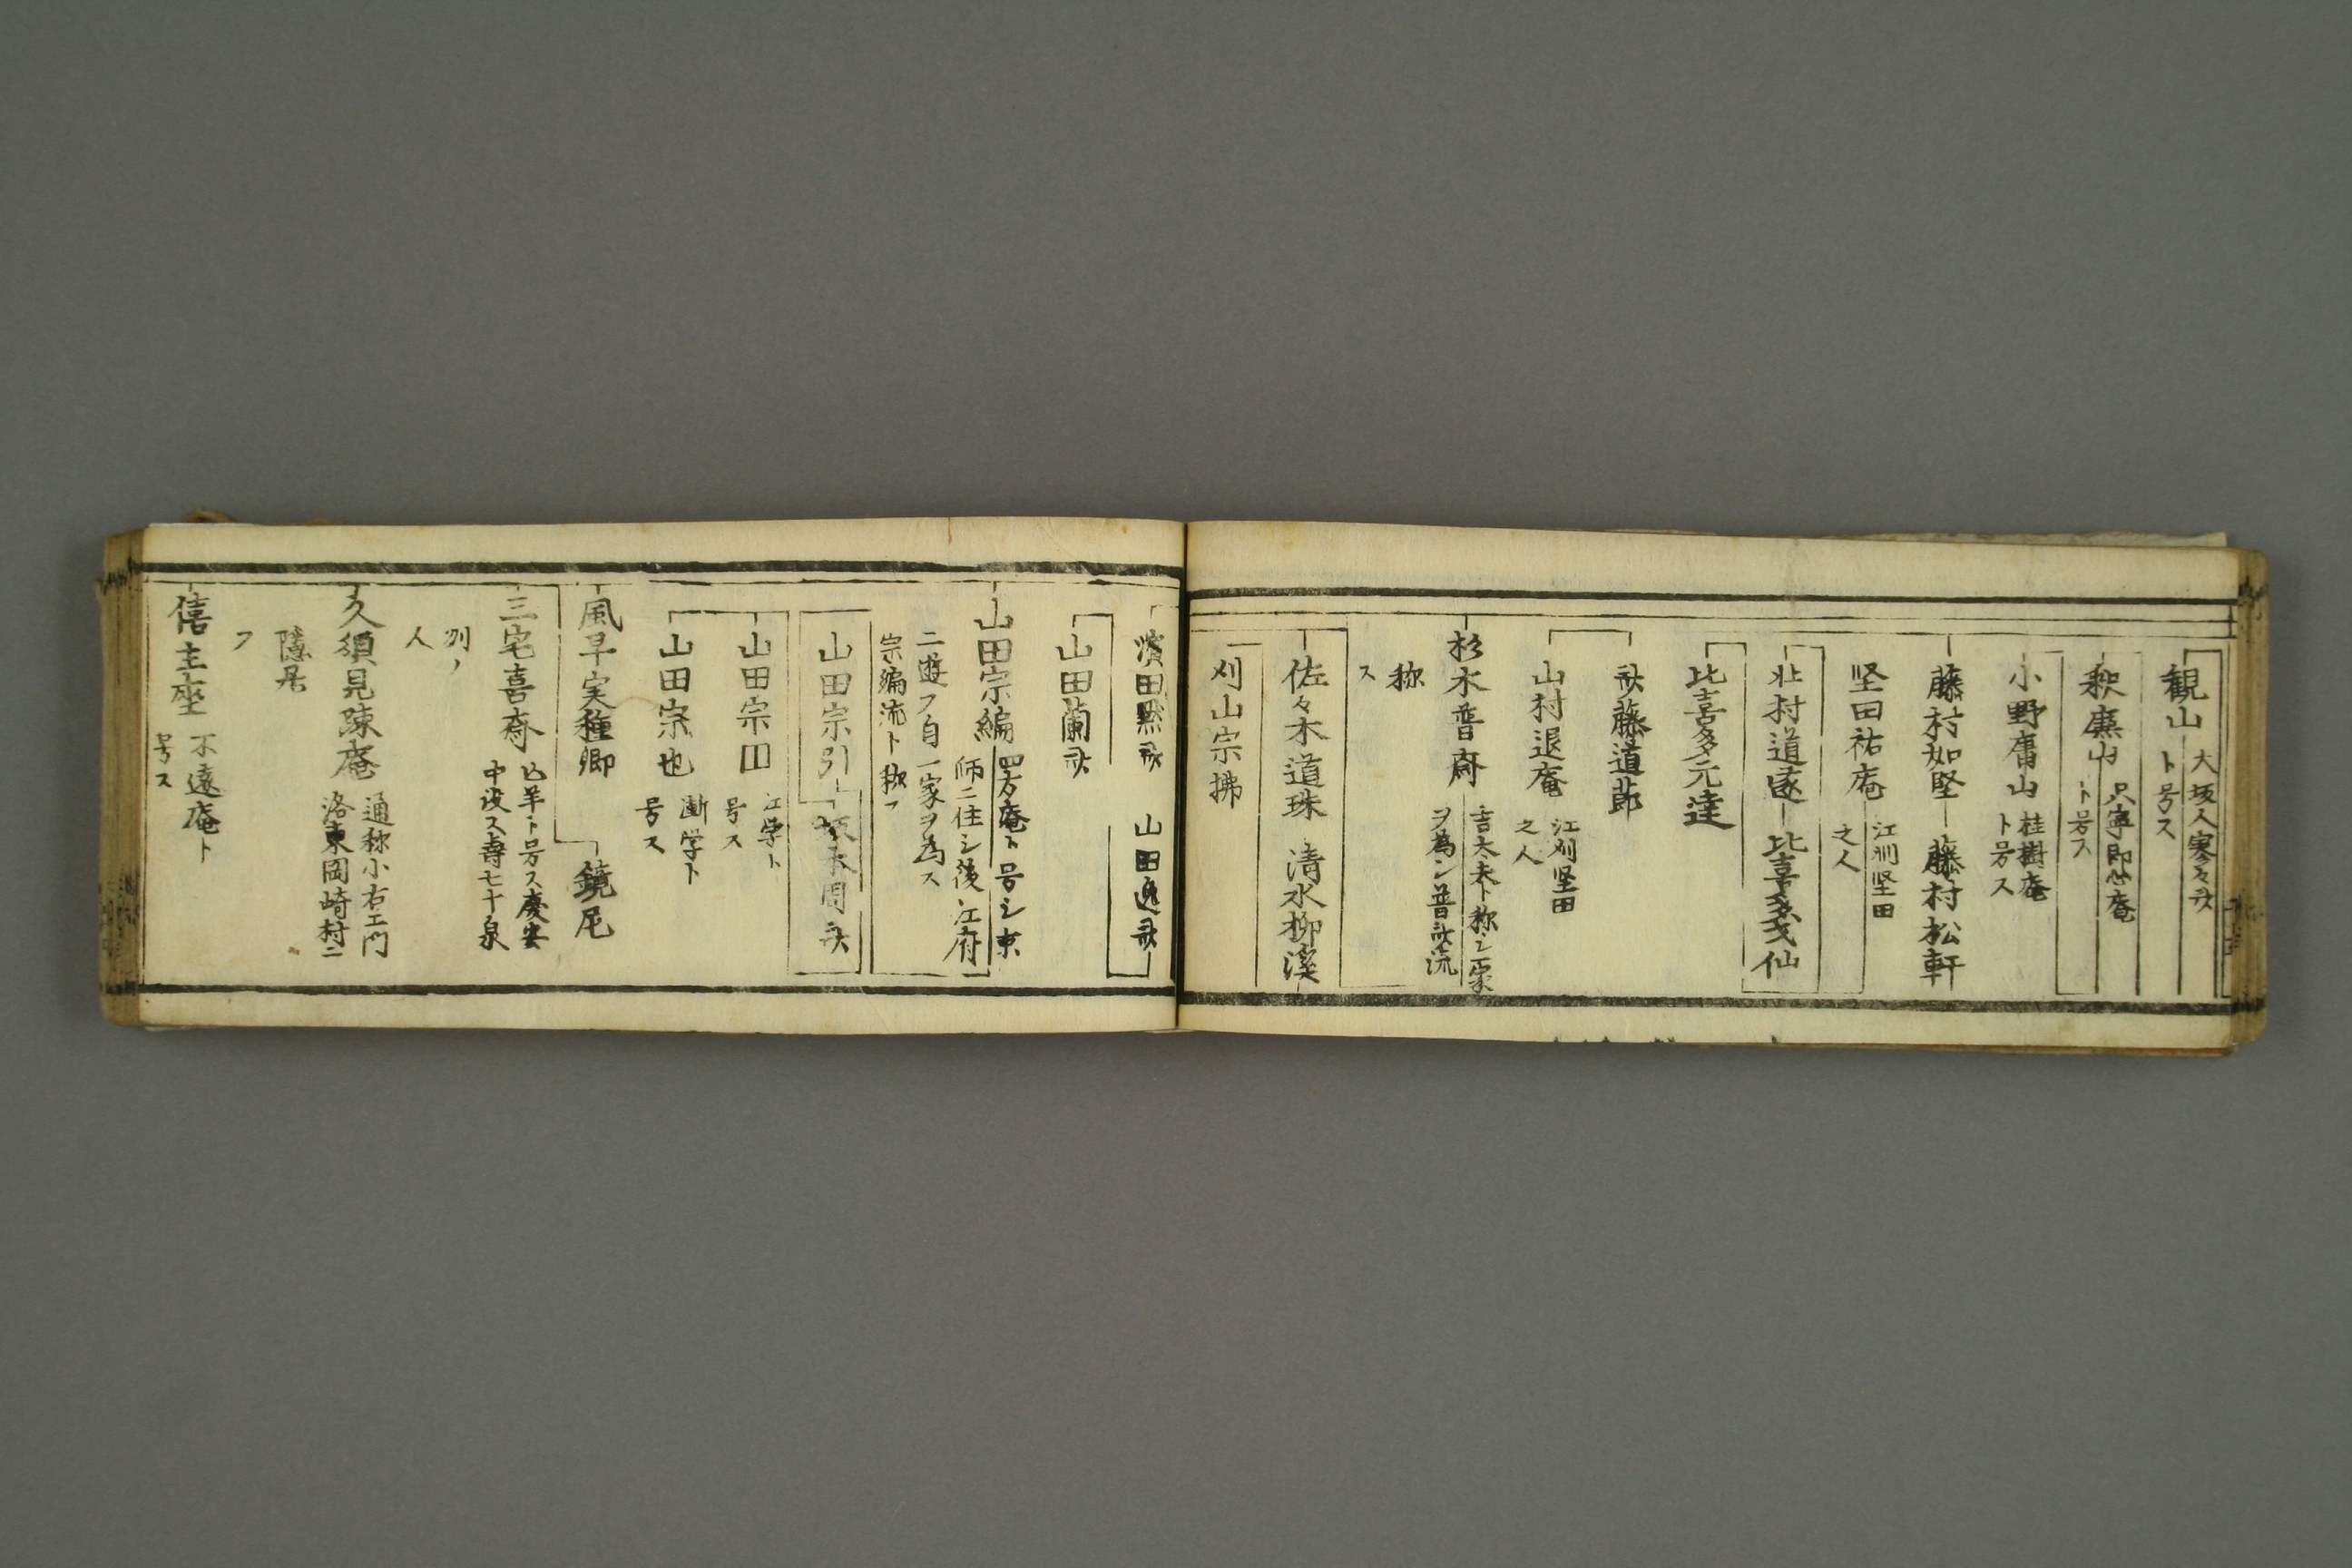 観山
大坂人寒々斎
ト号ス
釈廉山
只寧即心庵
ト号ス
小野庸山
桂樹庵
ト号ス
藤村如堅
藤村松軒
堅田祐庵
江州堅田
之人
北村道遂
比喜多戈仙
比喜多元達
斎藤道節
山村退庵
江州堅田
之人
杉木普斎
吉太夫ト称シ一家
ヲ為シ普斎流
称
ス
佐々木道珠
清水柳溪
刈山宗拂
濱田黙斎
山田逸斎
山田蘭斎
山田宗編
四方庵ト号シ東
師ニ住シ後江府
ニ遊フ自一家ヲ為ス
宗編流ト称フ
山田宗引
坂本周斎
山田宗円
江学ト
号ス
山田宗也
漸学ト
号ス
風早実種卿
鏡尼
三宅喜斎
亡羊ト号ス慶安
中没ス寿七十泉
州ノ
人
久須見疎庵
通称小右エ門
洛東岡崎村ニ
隠居
フ
僖主座
不遠庵ト
号ス